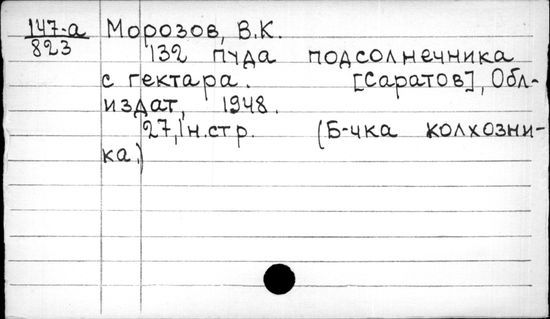 147-а Морозов, В.К.
823 132 пуда подсолнечника
с гектара. [Саратов], Обл-
издат, 1948.
27,1н.стр. (Б-чка колхозни-
ка.)